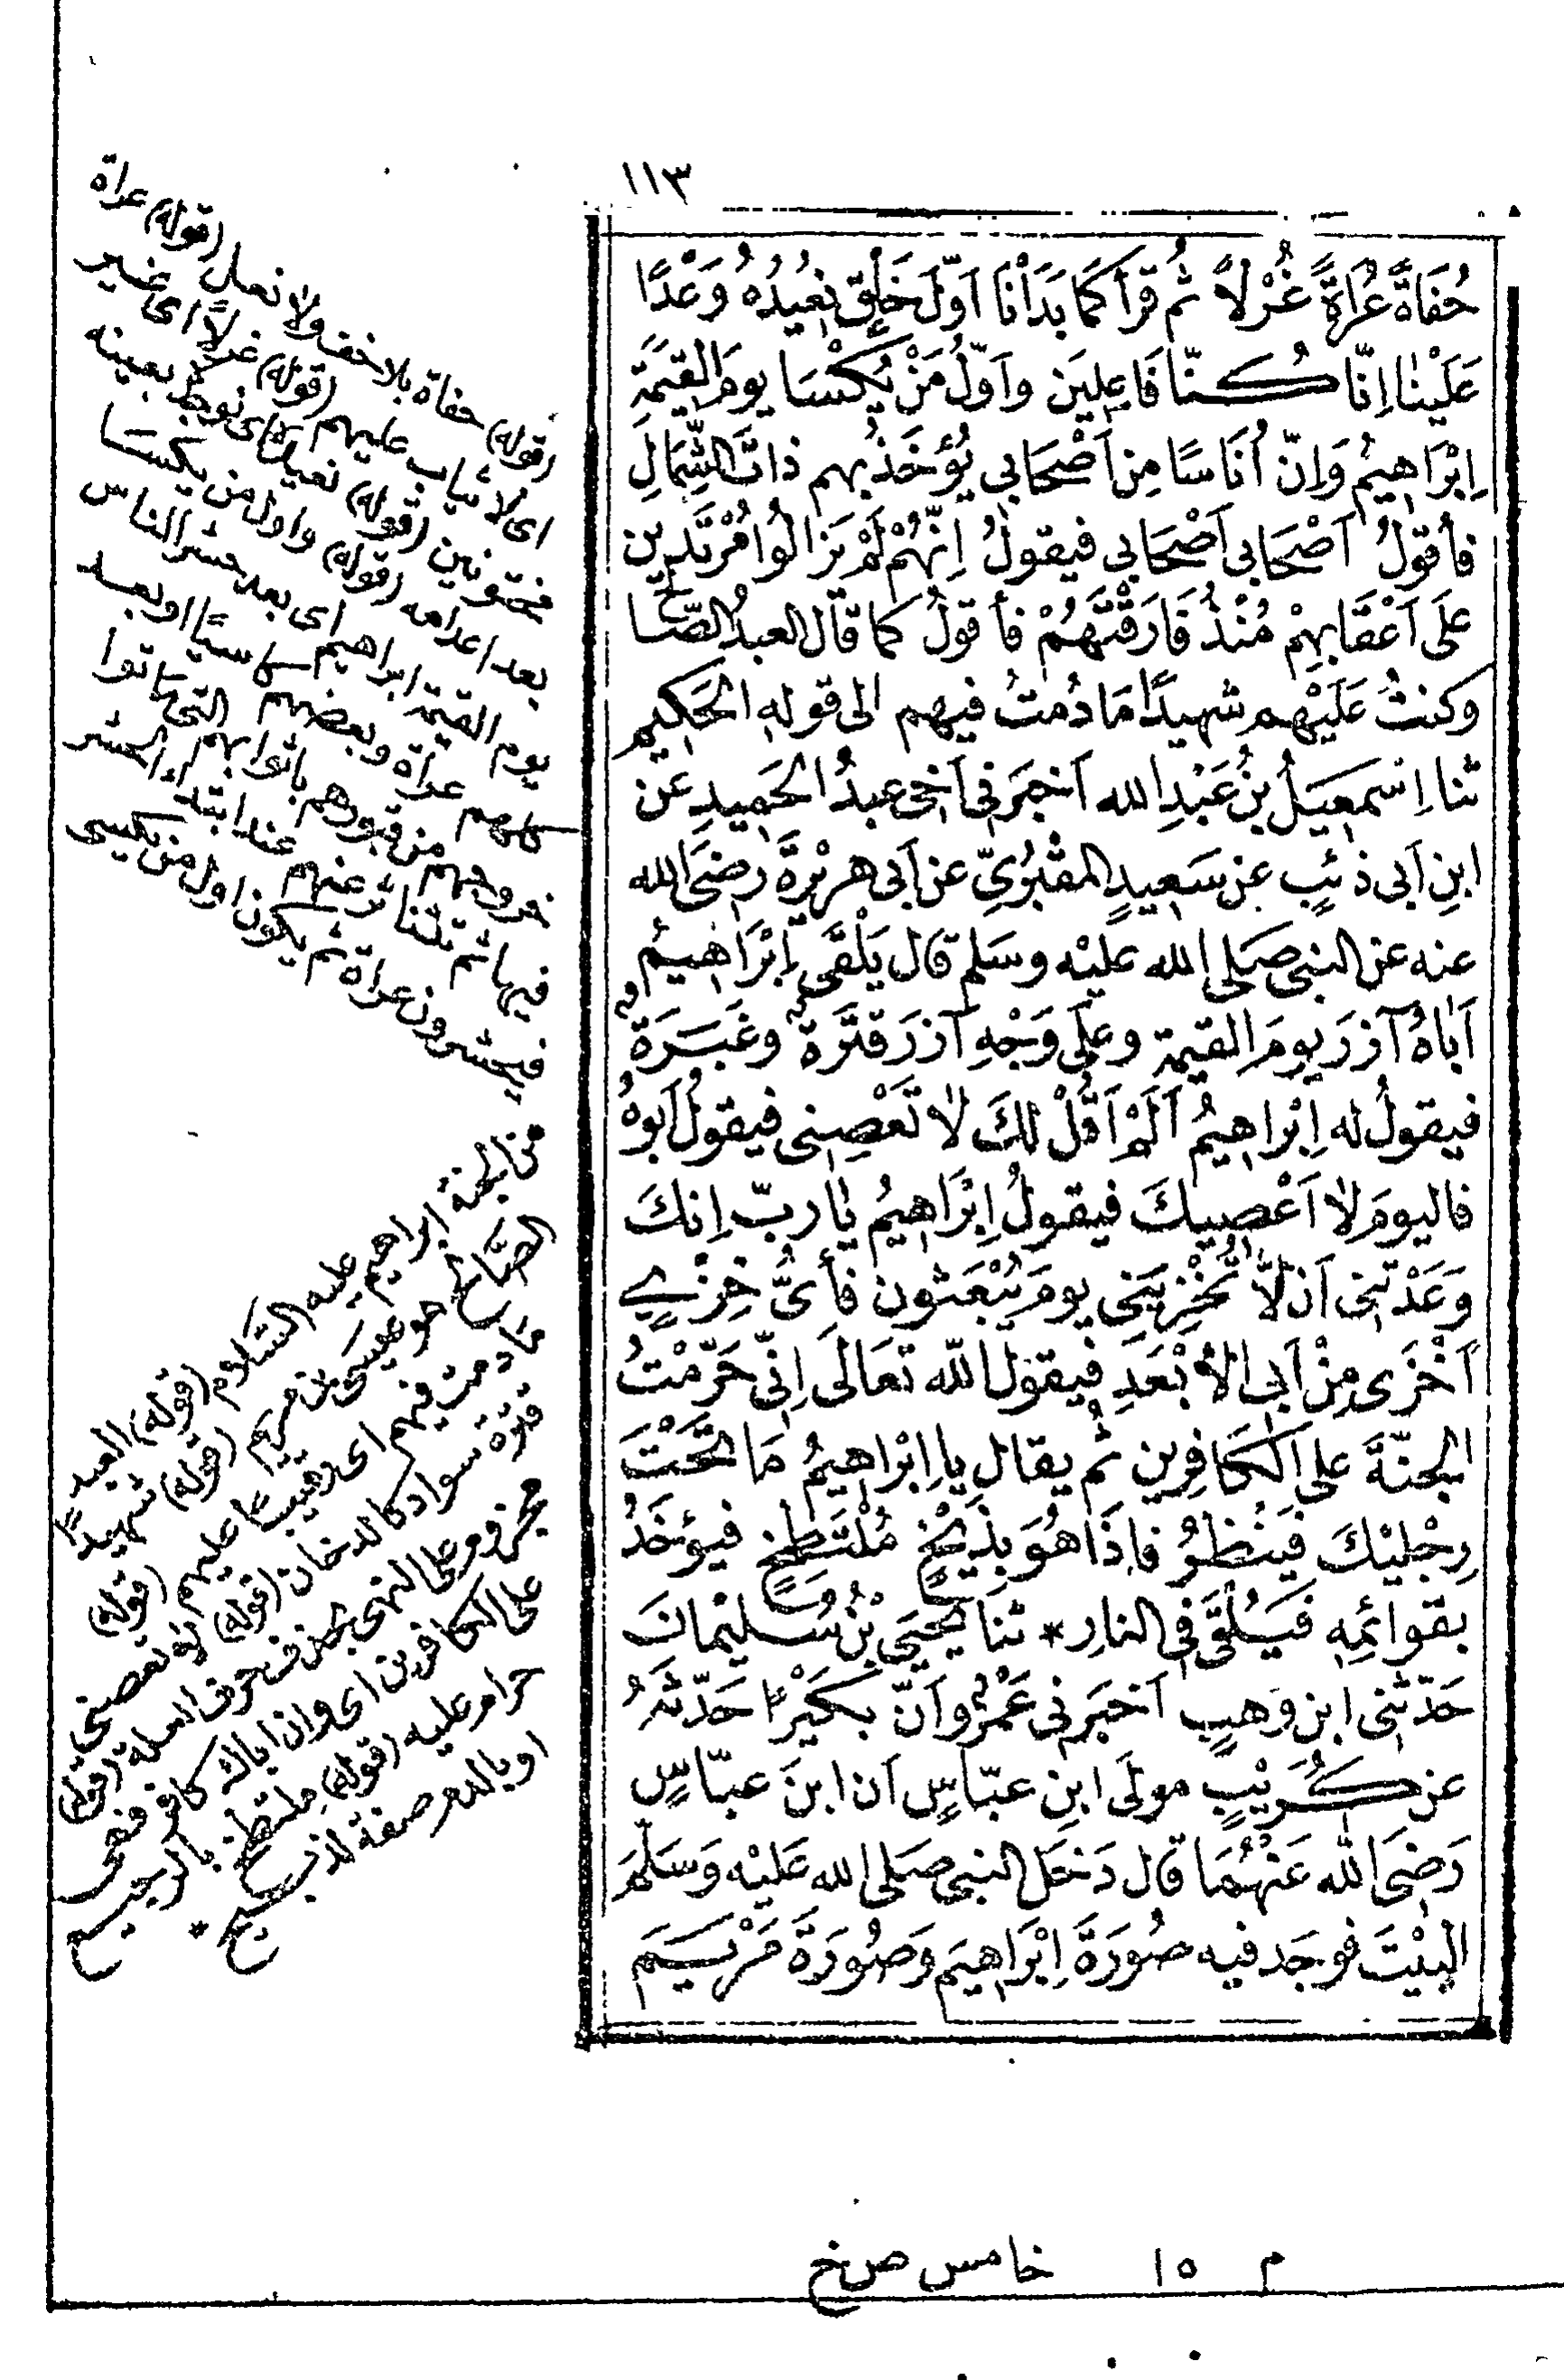 ١١٣
حُفَاةً عُرَاةً غُرْلًا ثُم قرأ كَمَا بَدَأْنَا اَوَّلَ خَلْقٍ نُعِيدُهُ وَعْدًا
عَلَيْنَا اِنَّا كُنَّا فَاعِلِينَ واَوّلُ مَنْ يُكْسَا يومَ القِيٰمَةِ
اِبْرَاهِيمُ وَاِنّ اُنَاسًا مِن اَصْحَابِي يُؤخَذُ بهم ذاتَ الشِّمَالِ
فأقولُ اَصْحَابى اَصْحَابى فيقولُ اِنَّهُمْ لَمْ يَزَالُوا مُرْتَدِّين
عَلَى اَعْقَابِهِمْ مُنْذُ فَارَقْتَهُمْ فأقولُ كما قال العبدُ الصّالح
وكنتُ عَلَيْهِم شهيدًا مَا دُمتُ فيهم الى قولهِ الحَكيم
ثنا اِسْمٰعيلُ بنُ عَبْدِ الله اَخبَرَنى اَخى عبدُ الحَمِيدِ عن
ابنِ اَبى ذئبٍ عن سَعيدٍ المقبُرِيّ عن اَبى هريْرةَ رضىَ الله
عنه عن النبى صَلى الله عليْه وسَلم قال يَلْقَى اِبْرَاهيمُ
اَبَاهُ آزرَ يومَ القيٰمة وعلَى وَجْهِ آزرَ قَتَرَةٌ وغَبَرَةٌ
فيقولُ له اِبْرَاهيمُ اَلَمْ اَقُلْ لكَ لا تَعْصِنى فيقولُ اَبوهُ
فاليومَ لا اَعْصِيكَ فيقولُ اِبْرَاهِيمُ يٰا ربّ اِنكَ
وَعَدْتَنى اَن لاَّ تُخْزِيَنِى يومَ يُبْعَثون فأىُّ خِزْىٍ
اَخْزَى مِنْ اَبى الأَبْعَدِ فيقولُ اللّه تعَالَى اِنِّى حَرّمْتُ
الجنّةَ على اَلكَافِرِين ثُم يقال يا اِبْرَاهِيمُ مَا تَحْتَ
رِجْلَيْكَ فَيَنْظرُ فاِذَا هُوَ بِذِيْخٍ مُلْتَطِخٍ فيؤخَذُ
بقوائمِهِ فَيُلْقَى فى النارِ * ثنا يَحْيَى بْنُ سُلَيْمانَ
حَدّثَنى ابن وَهبٍ اَخبَرَنى عَمْرٌو اَنّ بكَيْرًا حَدّثهُ
عن كُرَيْبٍ مولَى ابنِ عبّاسٍ اَن ابنَ عبّاسٍ
رَضىَ اللّه عَنْهُمَا قال دَخَل النبى صَلى الله عَليْه وَسَلّمَ
البيْتَ فوجَد فيه صُورَةَ اِبْرَاهِيمَ وَصُورَةَ مَرْيَمَ
(قوله) حفاة بلا خف ولا نعل (قوله) عراة
اى لا ثياب عليهم (قوله) غرلًا اى غير
مختونين (قوله) نعيده اى نوجده بعينه
بعد اعدامه (قوله) واول من يكسَا
يوم القيٰمة ابراهيم اى بعد حشر الناس
كلهم عراة وبعضهم كاسيًا او بعد
خروجهم من قبورهم باثوابهم التى ماتوا
فيها ثم تتناثر عنهم عند ابتداء الحشر
فيحشرون عراة ثم يكون اول من يكسى
من الجنة ابراهيم عليه السَّلام (قوله) العبد
الصَّالح هو عيسى بن مريم (قوله) شهيدًا
ما دمت فيهم اى رقيبًا عليهم (قوله)
قترة سواد كالدخان (قوله) لا تعصنى
مجزوم على النهى بحذف حرف العلة (قوله)
على الكافرين اى وان اباك كافر فهى
حرام عليه (قوله) ملتطخ بالرجيع
او بالدم صفة لذيخ *
م ١٥ خامس ص خ